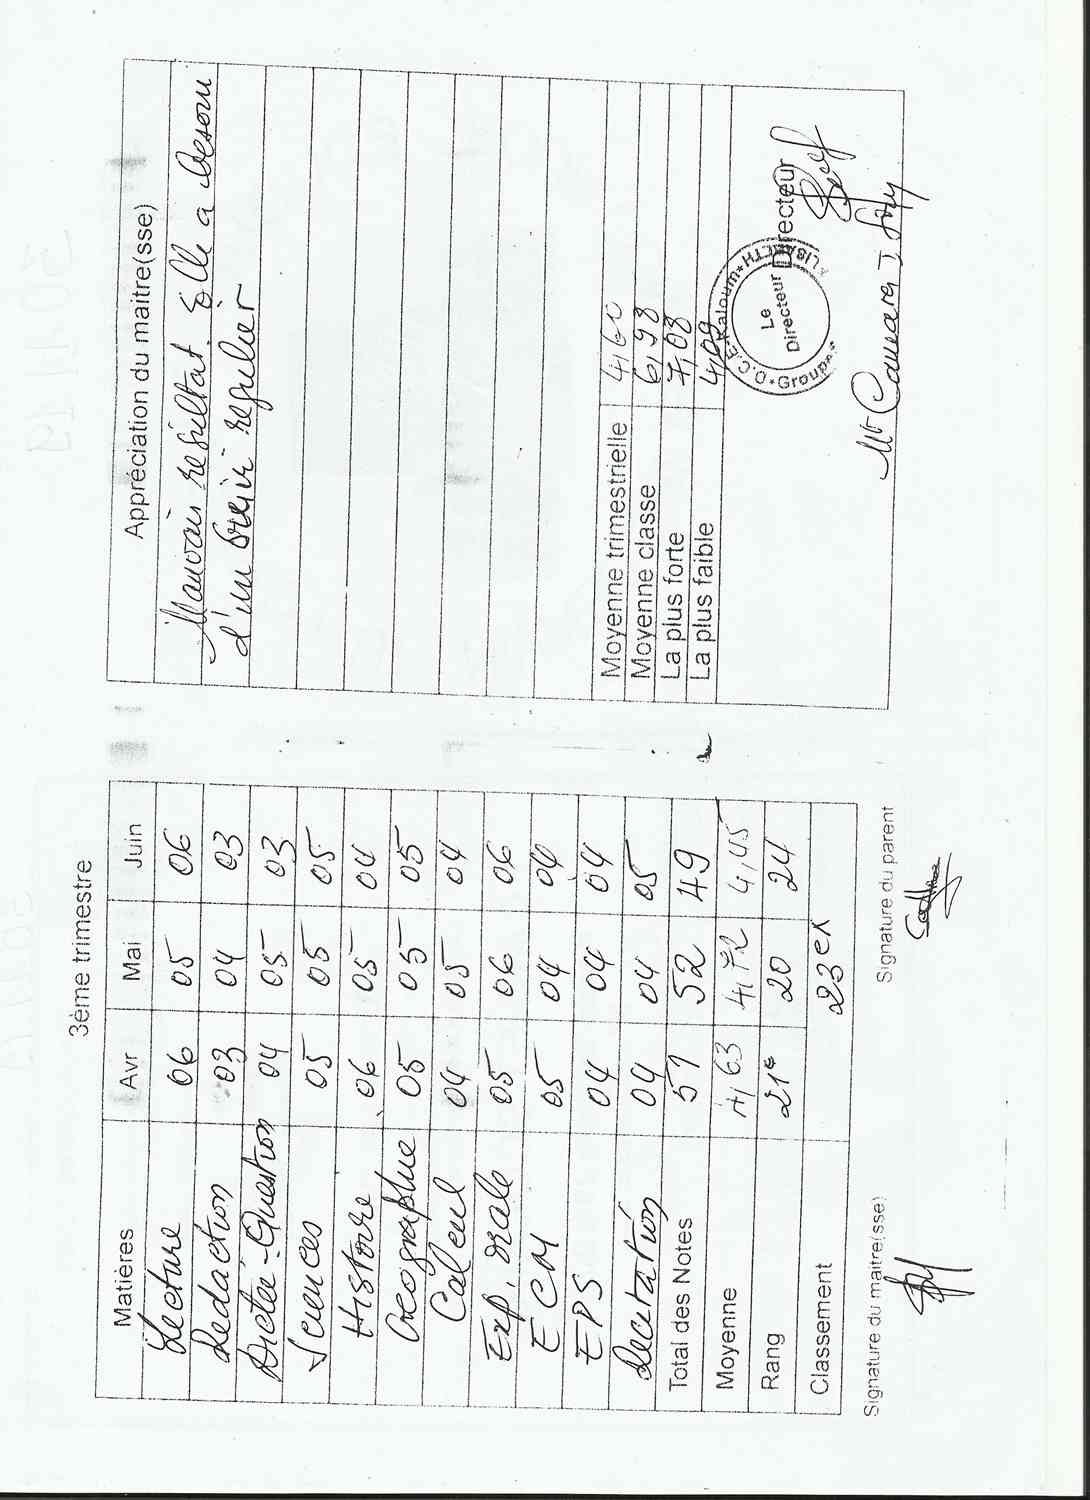 3ème trimestre
Matières Avr Mai Juin
Lecture 06 05 06
Redaction 03 04 03
Dictée-Question 04 05 03
Sciences 05 05 05
Histoire 06 05 04
Géographie 05 05 05
Calcul 04 05 04
Exp. orale 05 06 06
ECM 05 04 04
EPS 04 04 04
Recitation 04 04 05
Total des Notes 51 52 49
Moyenne 4,63 4,72 4,45
Rang 21e 20 24
Classement 23ex
Signature du maitre(sse) Signature du parent
Appréciation du maitre(sse)
Mauvais resultat. Elle a besoin
d'un suivi regulier
Moyenne trimestrielle 4,60
Moyenne classe 6,98
La plus forte 7,08
La plus faible 4,09
Directeur
D.C.E. Kaloum
Groupe
Le
Directeur
Mr Camara I. Sory